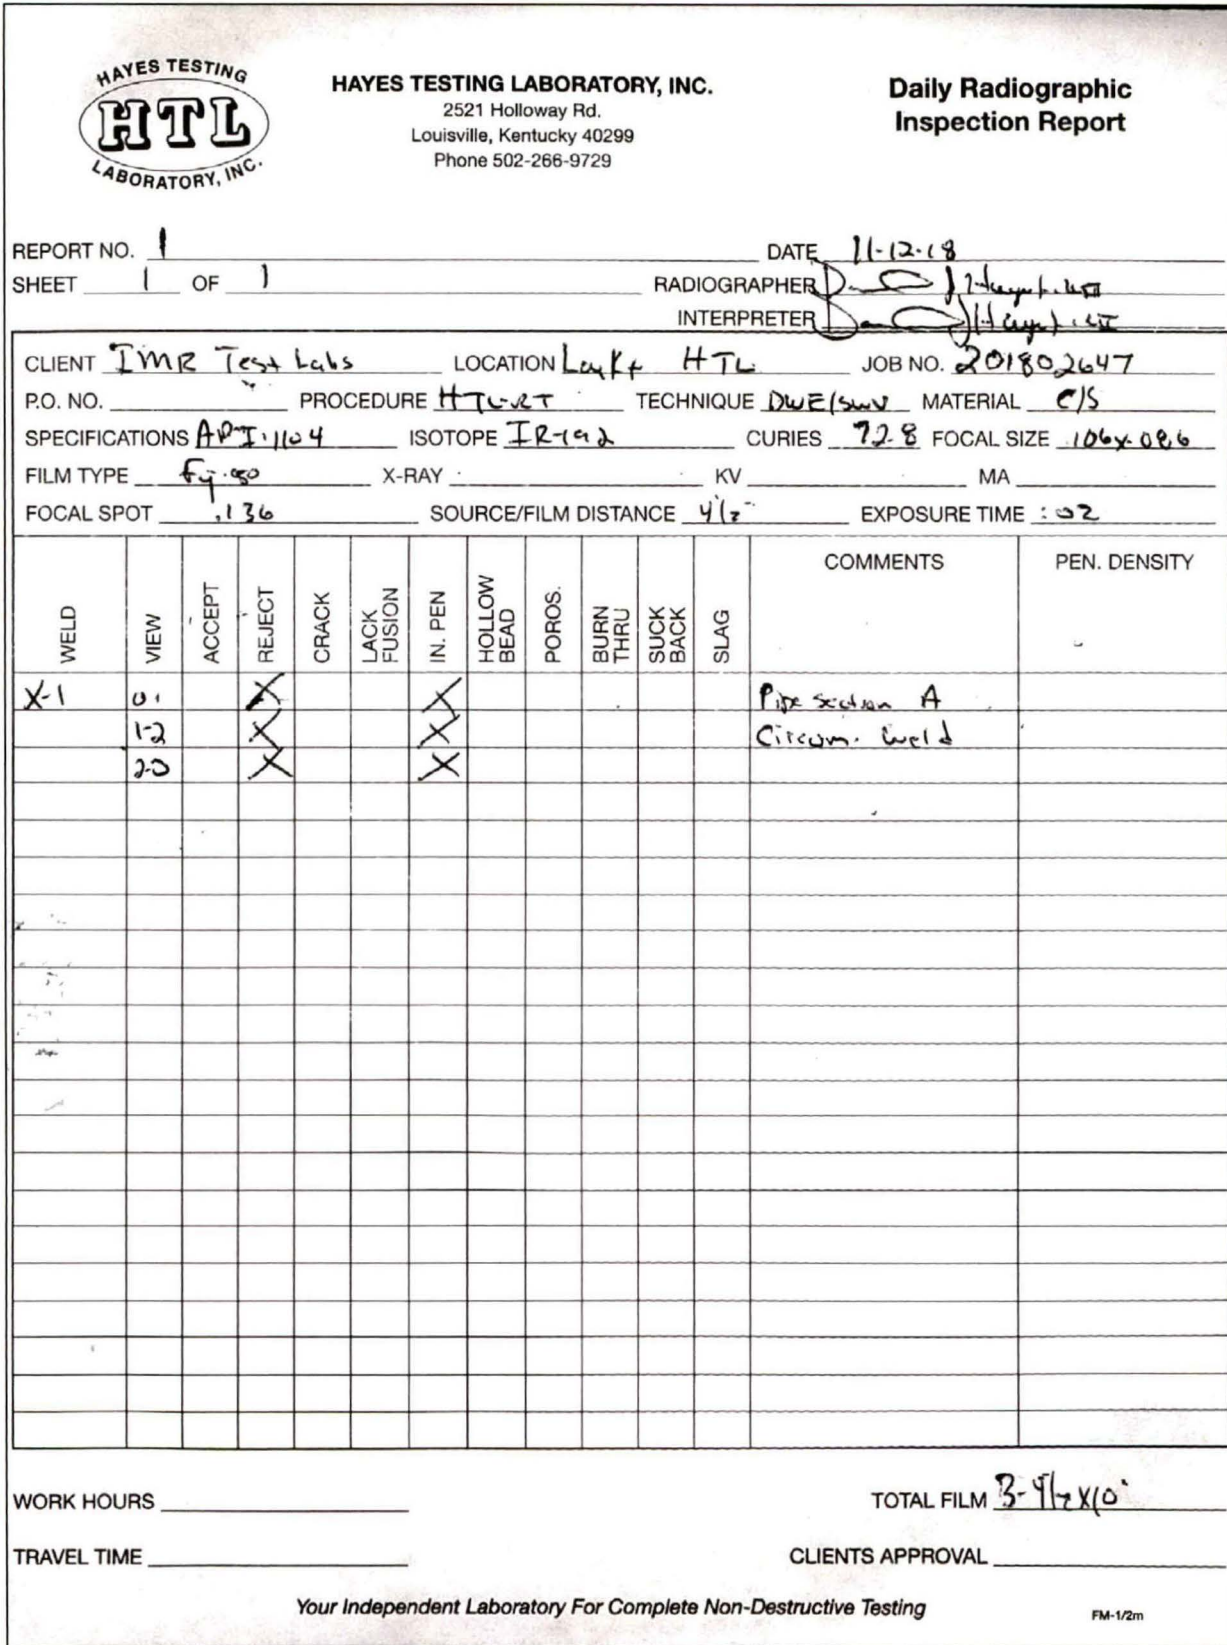 HAYES TESTING
HTL
LABORATORY, INC.
HAYES TESTING LABORATORY, INC.
2521 Holloway Rd.
Louisville, Kentucky 40299
Phone 502-266-9729
Daily Radiographic
Inspection Report
REPORT NO. 1
DATE 11-12-18
SHEET 1 OF 1
RADIOGRAPHER
INTERPRETER
CLIENT IMR Test Labs LOCATION HTL JOB NO. 201802647
P.O. NO. PROCEDURE HTL-RT TECHNIQUE DWE/SWV MATERIAL C/S
SPECIFICATIONS API-1104 ISOTOPE IR-192 CURIES 72.8 FOCAL SIZE .106x.086
FILM TYPE X-RAY KV MA
FOCAL SPOT .136 SOURCE/FILM DISTANCE 4 1/2" EXPOSURE TIME :02
WELD VIEW ACCEPT REJECT CRACK LACK FUSION IN. PEN HOLLOW BEAD POROS. BURN THRU SUCK BACK SLAG COMMENTS PEN. DENSITY
X-1 0-1 X X Pipe section A
1-2 X X Circum. weld
2-0 X X
WORK HOURS TOTAL FILM 3-4 1/2 x 10"
TRAVEL TIME CLIENTS APPROVAL
Your Independent Laboratory For Complete Non-Destructive Testing
FM-1/2m